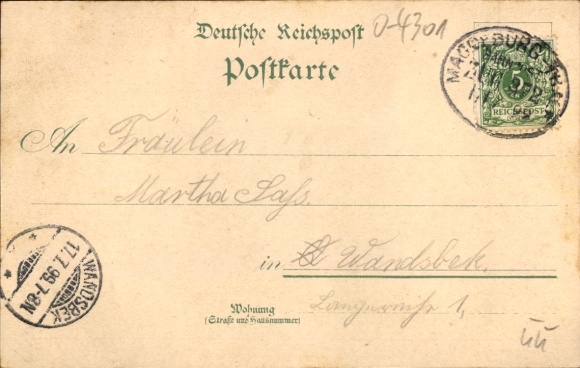 Deutsche Reichspost
0-4301
Postkarte
MAGDEBURG
ZUG 272
5
REICHSPOST
An Fräulein
Martha Sass.
in Wandsbek.
Wohnung
(Straße und Hausnummer)
Langereihe 1,
WANDSBEK
17.7.99.7-8N.